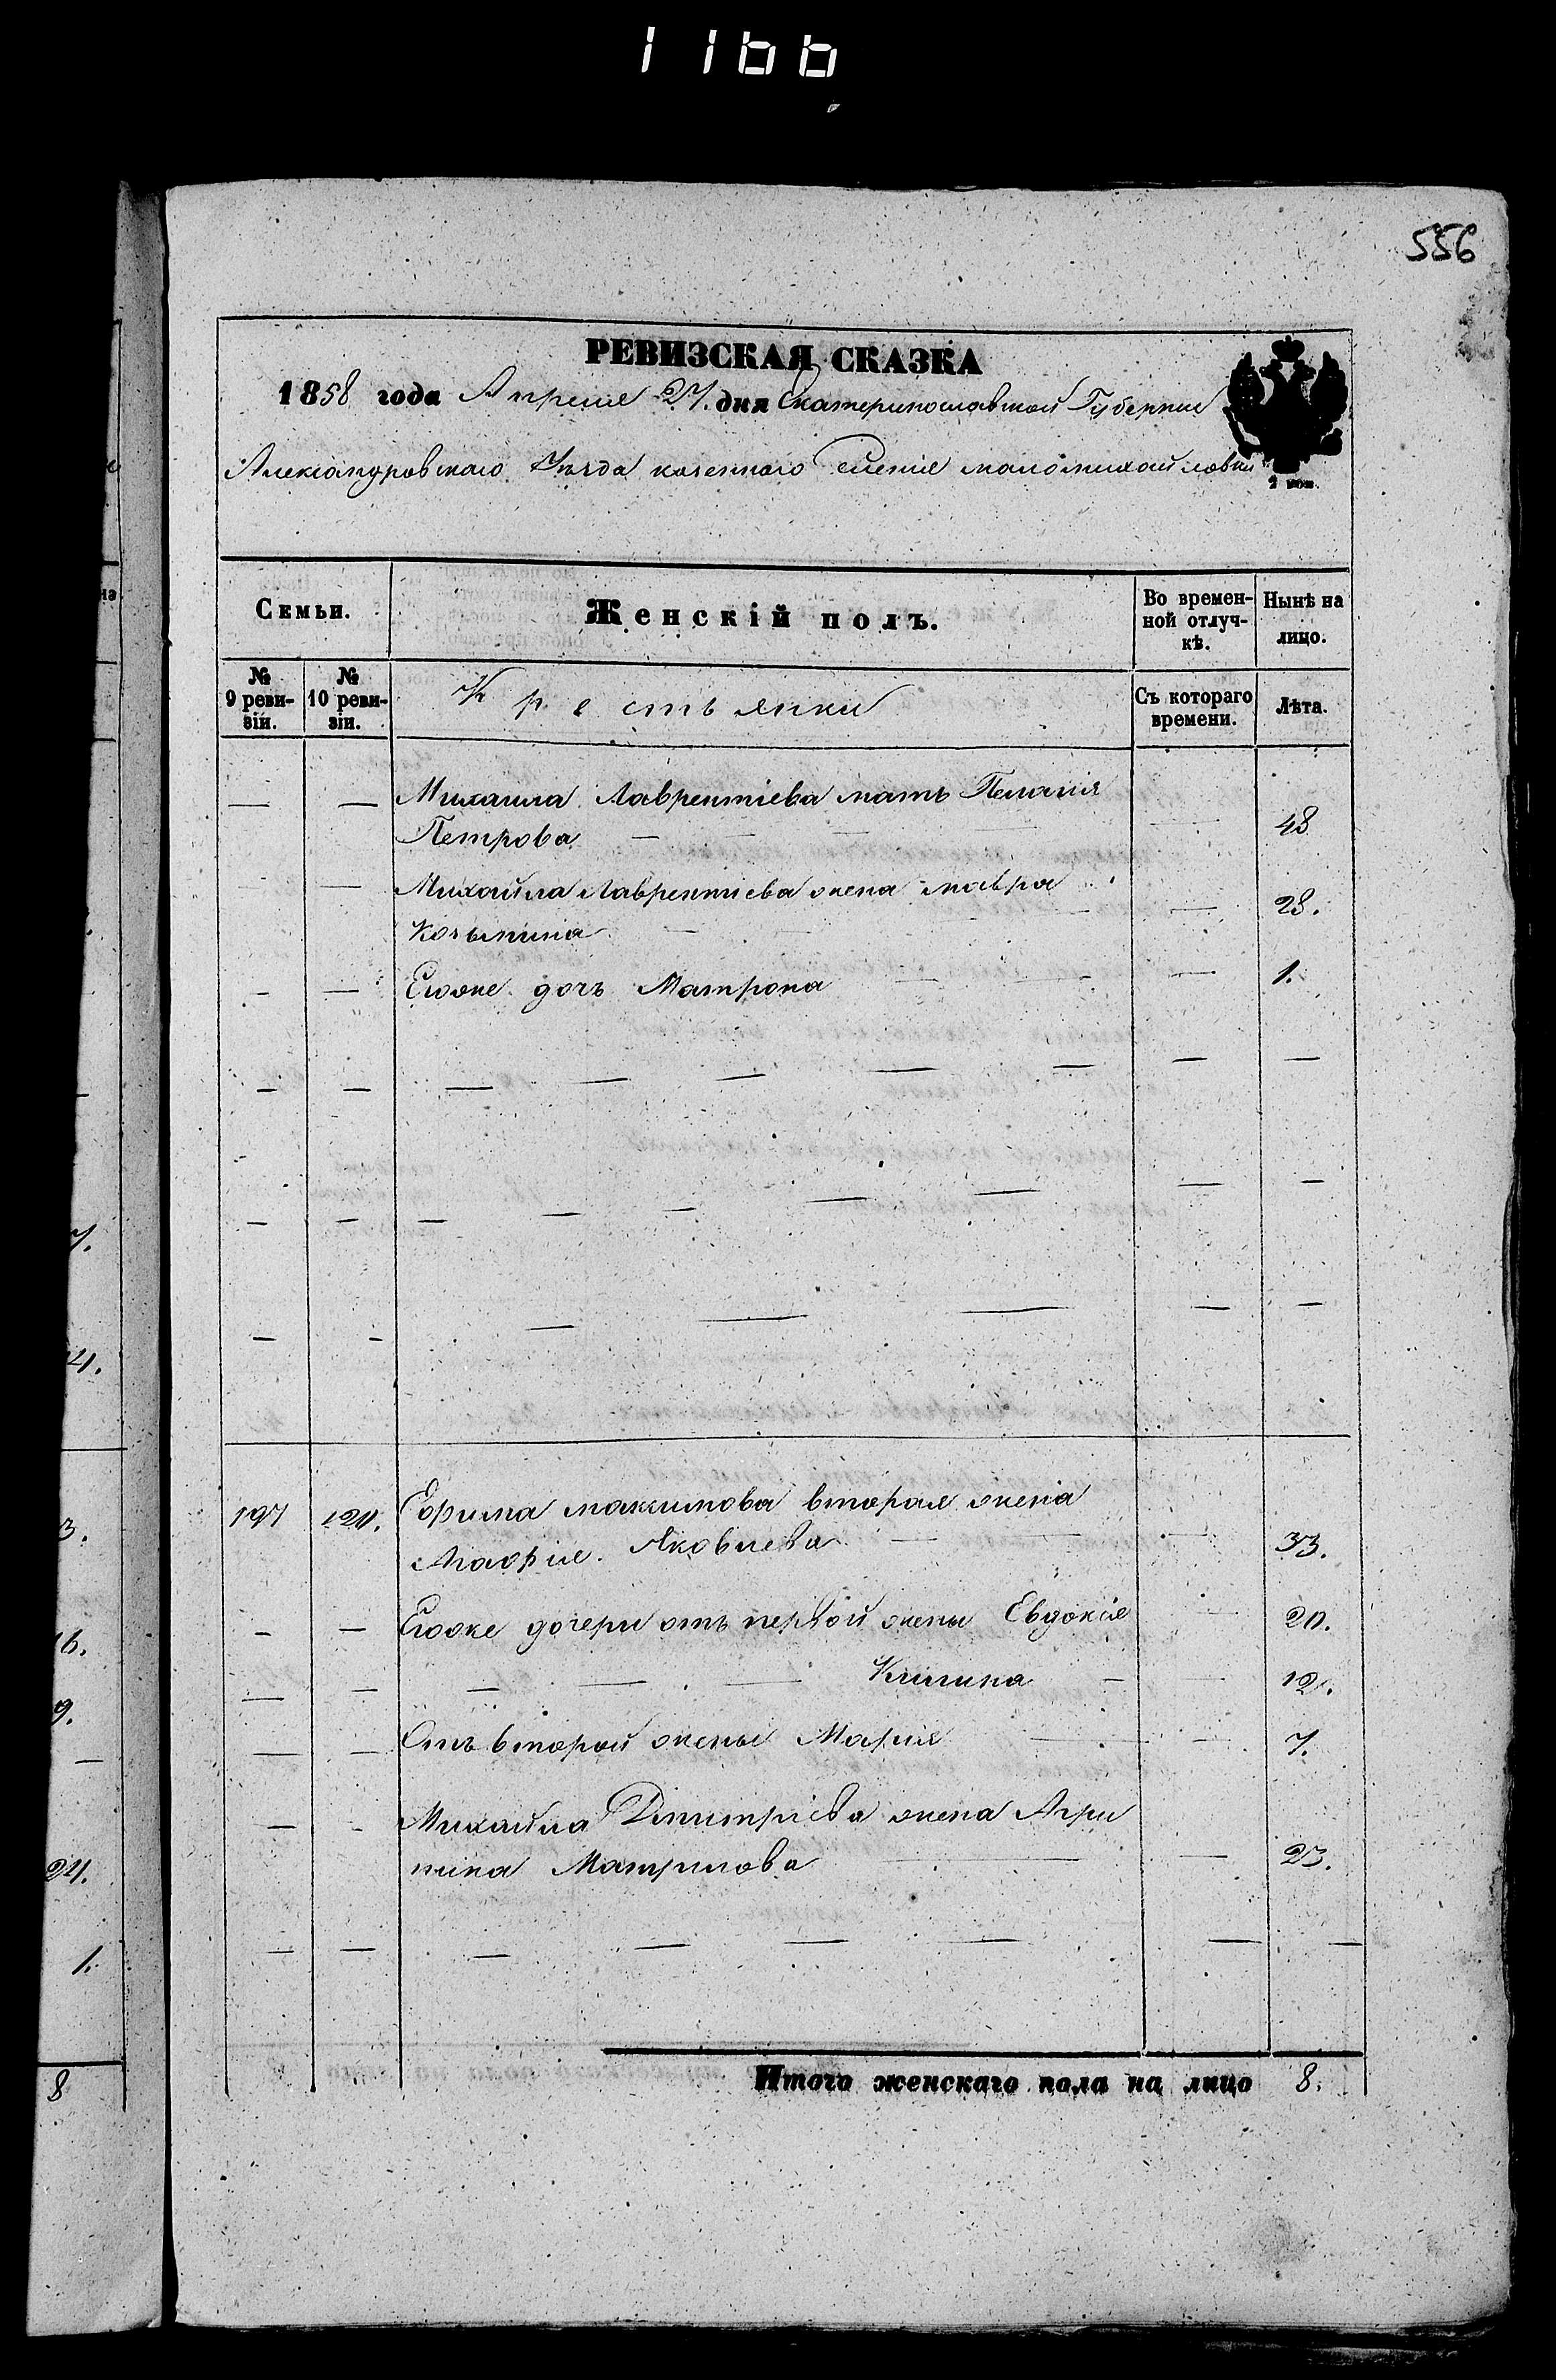 1166
556
РЕВИЗСКАЯ СКАЗКА
1858 года Апреля 27. дня Екатеринославской Губернии
Александровскаго Уѣзда казеннаго Селенія маломихайловки
Семьи.
Женскій полъ.
Во времен-
ной отлуч-
кѣ.
Нынѣ на
лицо.
№
9 реви-
зіи.
№
10 реви-
зіи.
Крестьянки
Съ котораго
времени.
Лѣта.
Михаила Лаврентіева мать Пелагія
Петрова 48
Михайла Лаврентіева жена мавра
28.
Козьмина
Егоже дочь Матрона 1.
197 120. Ефима максимова вторая жена
Агафія Яковлева 33.
Егоже дочери отъ первой жены Евдокія 20.
Килина 12.
Отъ второй жены Марія 7.
Михайла Дмитріева жена Агри
пина 23.
Итого женскаго пола на лицо 8.
7.
3.
16.
9.
24.
1.
8